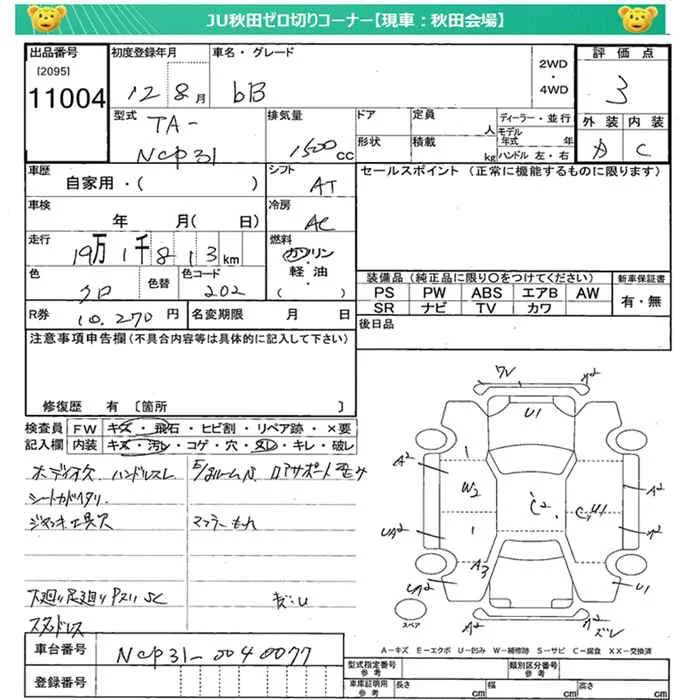 JU秋田ゼロ切りコーナー【現車：秋田会場】
出品番号 初度登録年月 車名・グレード 2WD・4WD 評価点
[2095]
11004
12 8月 bB 3
型式 排気量 ドア 定員 人 ディーラー・並行 外装 内装
TA-
NCP31 1500 CC 形状 積載 kg モデル年式 年 ハンドル 左・右 A C
車歴 シフト セールスポイント（正常に機能するものに限ります）
自家用・( ) AT
車検 冷房
年 月( 日) AC
走行 燃料
19万1千813km ガソリン・軽油・( )
色 色替 色コード 装備品（純正品に限り○をつけてください） 新車保証書
クロ 202 PS PW ABS エアB AW 有・無
SR ナビ TV カワ
R券 10,270円 名変期限 月 日 後日品
注意事項申告欄（不具合内容等は具体的に記入して下さい）
修復歴 有 〔箇所 〕
検査員 FW キズ・飛石・ヒビ割・リペア跡・×要
記入欄 内装 キズ・汚レ・コゲ・穴・スレ・キレ・破レ
ハンドルスレ
マフラーもれ
下廻り足廻り サビ SC
キズ・U
スタッドレス
車台番号 NCP31-0040077
登録番号
U1
A2
W2
C2
A3
U1
スペア
A-キズ E-エクボ U-凹み W-補修跡 S-サビ C-腐食 XX-交換済
型式指定番号 参考 類別区分番号 参考
車庫証明用 参考 長さ cm 幅 cm 高さ cm